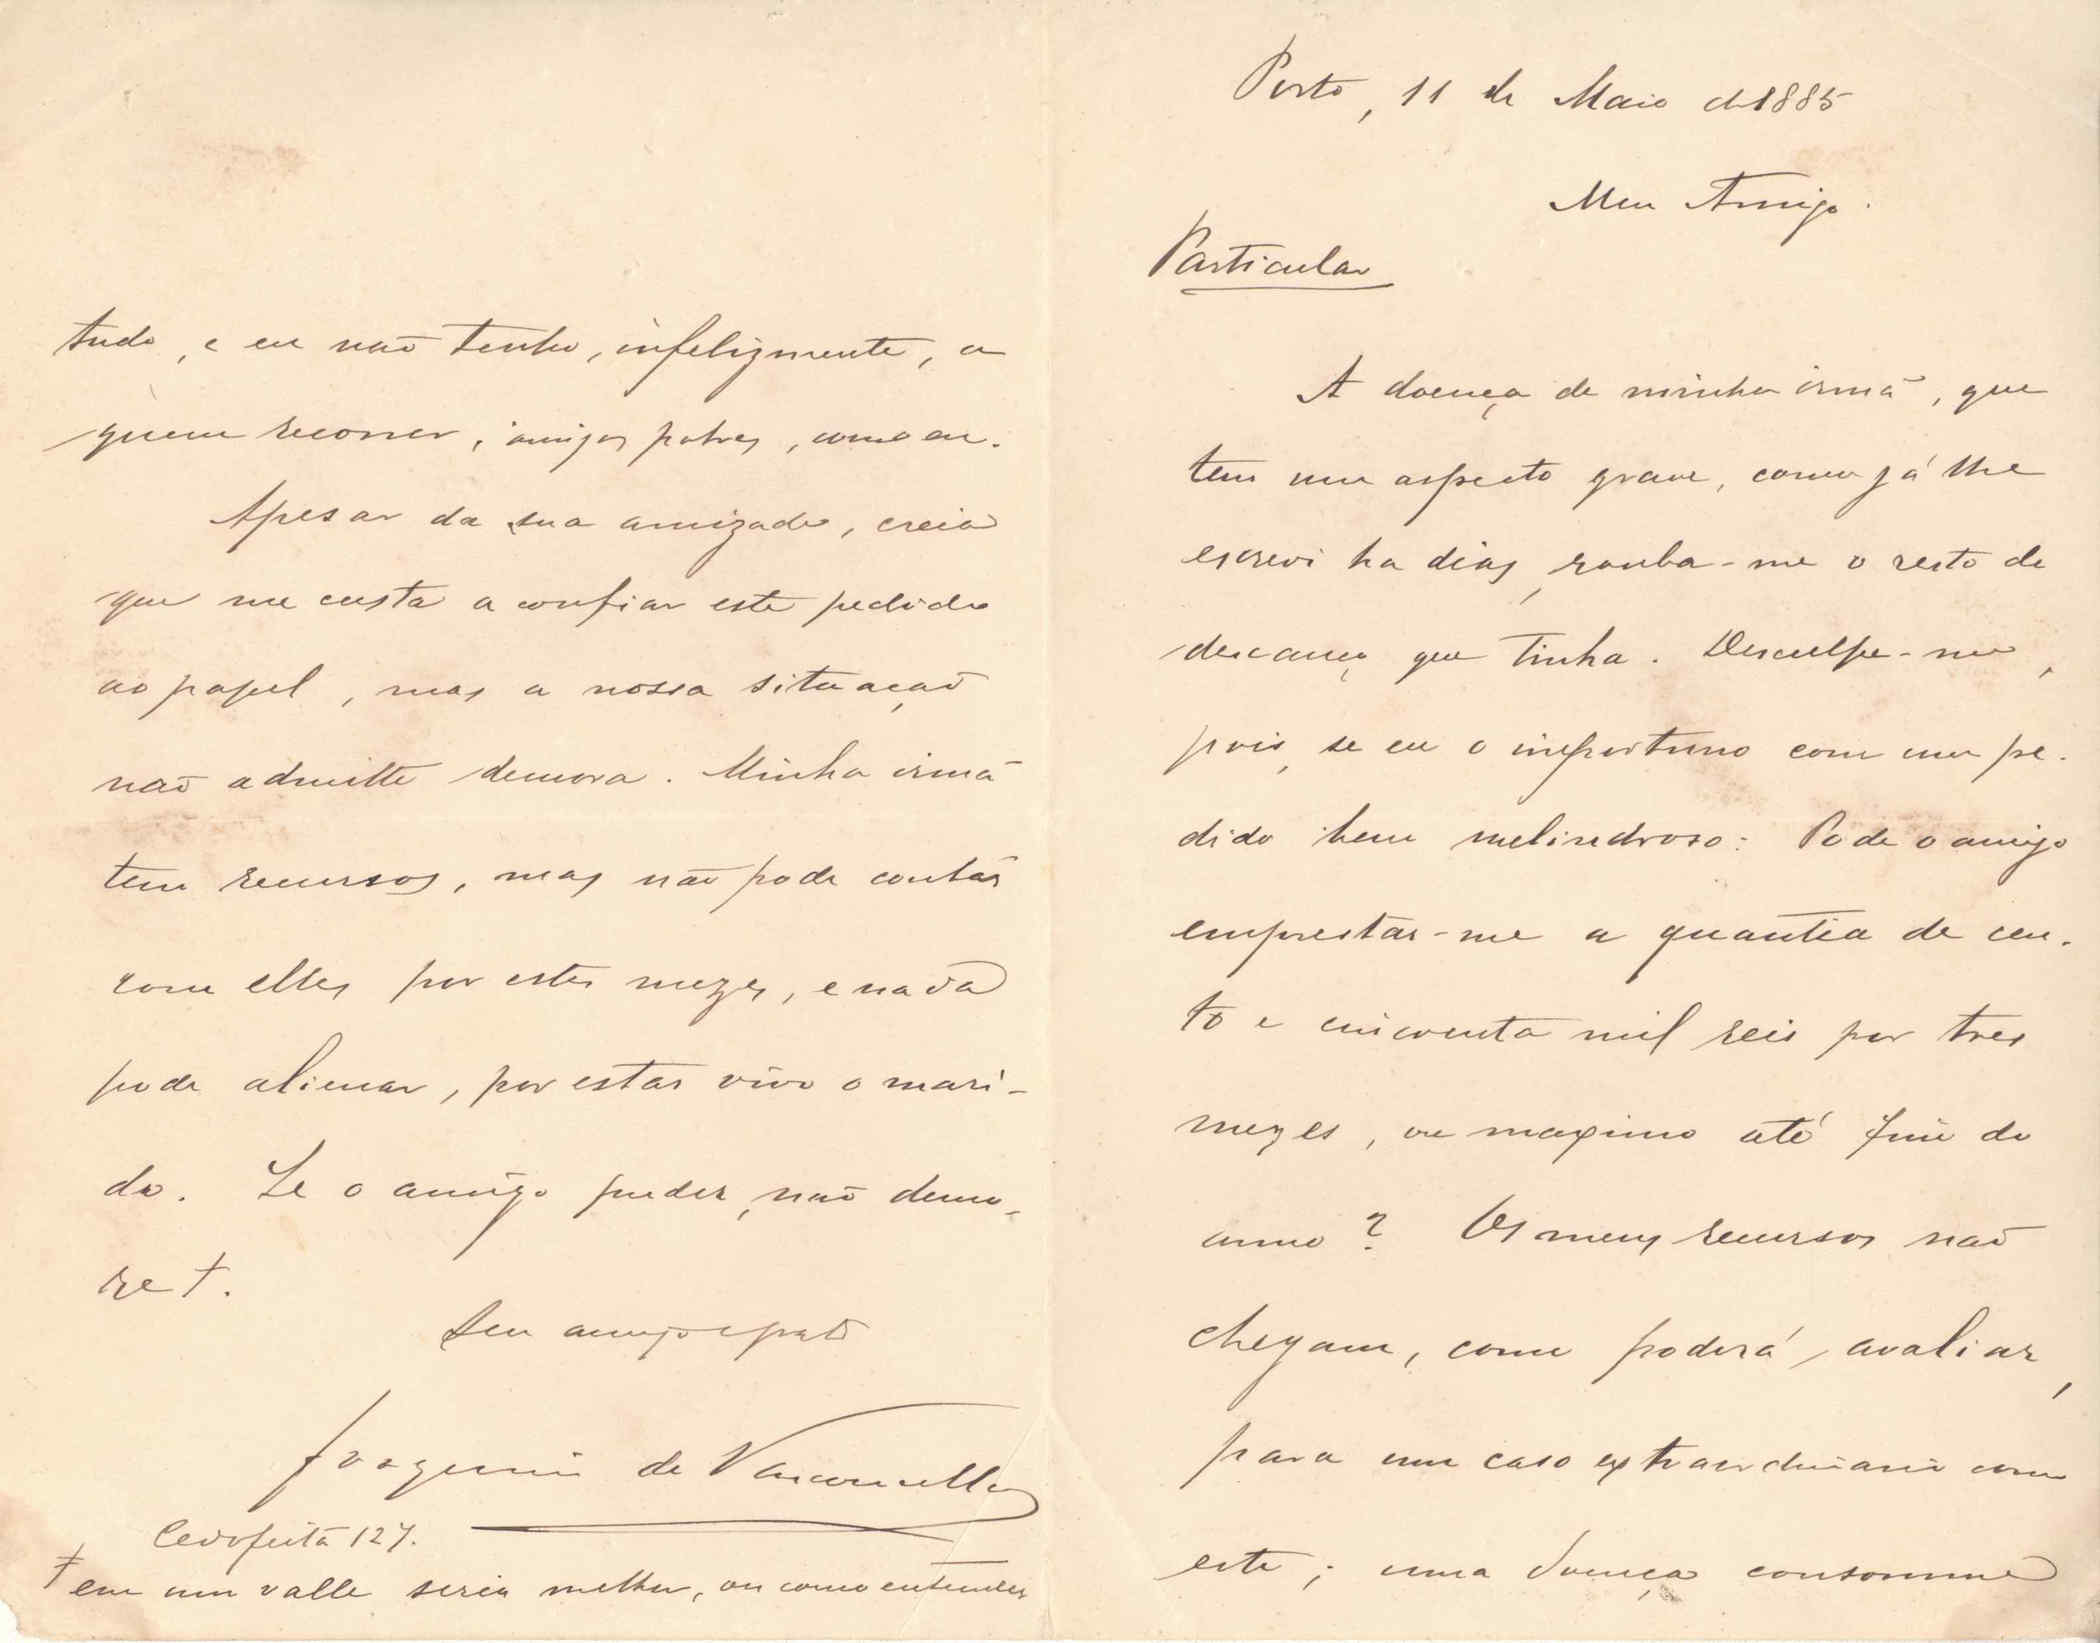 Porto, 11 de Maio de 1885
Meu Amigo.
Particular
A doença de minha irmã, que
tem um aspecto grave, como já lhe
escrevi ha dias, rouba-me o resto de
descanço que tinha. Desculpe-me,
pois, se eu o importuno com um pe-
dido bem melindroso: Pode o amigo
emprestar-me a quantia de cen-
to e cincoenta mil reis por tres
mezes, ou maximo até fim do
anno? Os meus recursos não
chegam, como poderá avaliar,
para um caso extraordinario como
este; uma doença consomme
tudo, e eu não tenho, infelizmente, a
quem recorrer, amigos pobres, como eu.
Apesar da sua amizade, creia
que me custa a confiar este pedido
ao papel, mas a nossa situação
não admitte demora. Minha irmã
tem recursos, mas não pode contar
com elles por estes mezes, e nada
pode alienar, por estar vivo o mari-
do. Se o amigo puder, não demo-
re †.
Seu amigo e grato
Joaquim de Vasconcellos
Cedofeita 127.
† em um valle seria melhor, ou como entender